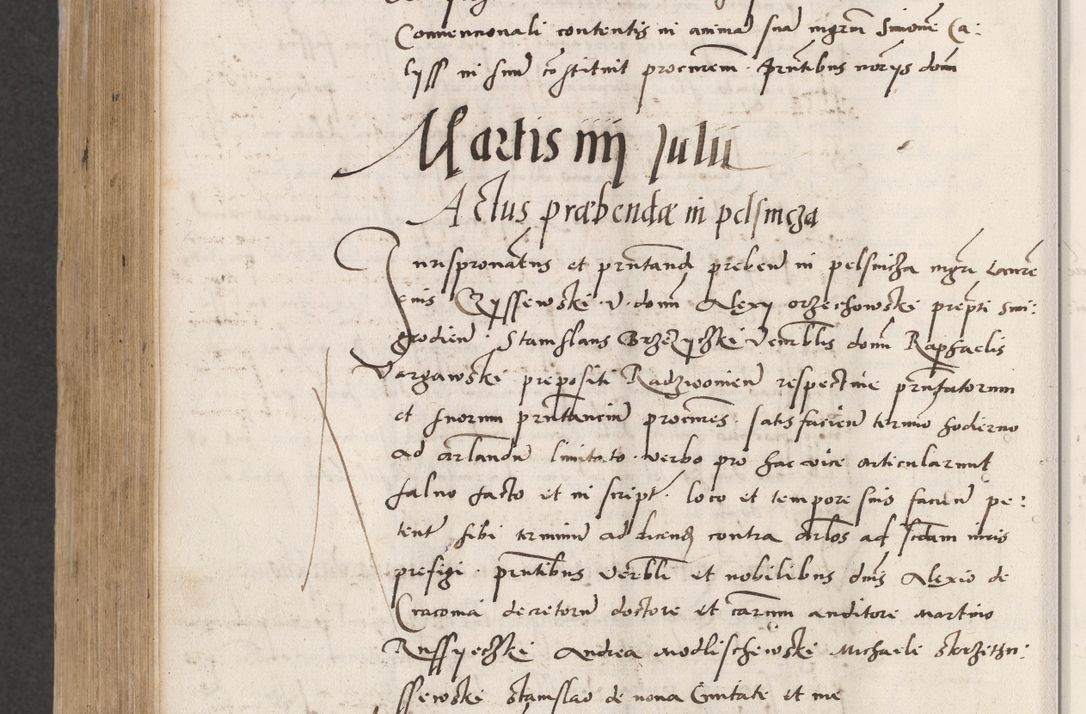 Convencionali contentis in animam suam mgrm Simonem Ca:
lyss in suum constituit procurem. Pntibus notarys dom
Martis iiij Julii
Actus præbendæ in pelsmcza
Jurispronatus et pntand preben in pelsnicza mgri Lauren
cius Czyssewski. V. domi Alexy orzechowski prepti smi:
grodien. Stanislaus Brzezyczki Venerblis domi Raphaelis
Vargawski prepositi Radziwoinen respective pnsatorum
et suorum pntancium procures. satisfacien termino hodierno
ad arlandum limitato. verbo pro hac vice articularunt
salvo facto et in script. loco et tempore suis facien pe:
tent sibi terminum ad dicend contra arlos ad scdam iuris
prefigi. Pntibus Verbli et nobilibus dnis Alexio de
Cracovia decretorum doctore et carum auditore Martino
Russyeczki Andrea modlischewski Michaele skrzetu:
ssewski Stanislao de nova Civitate et me